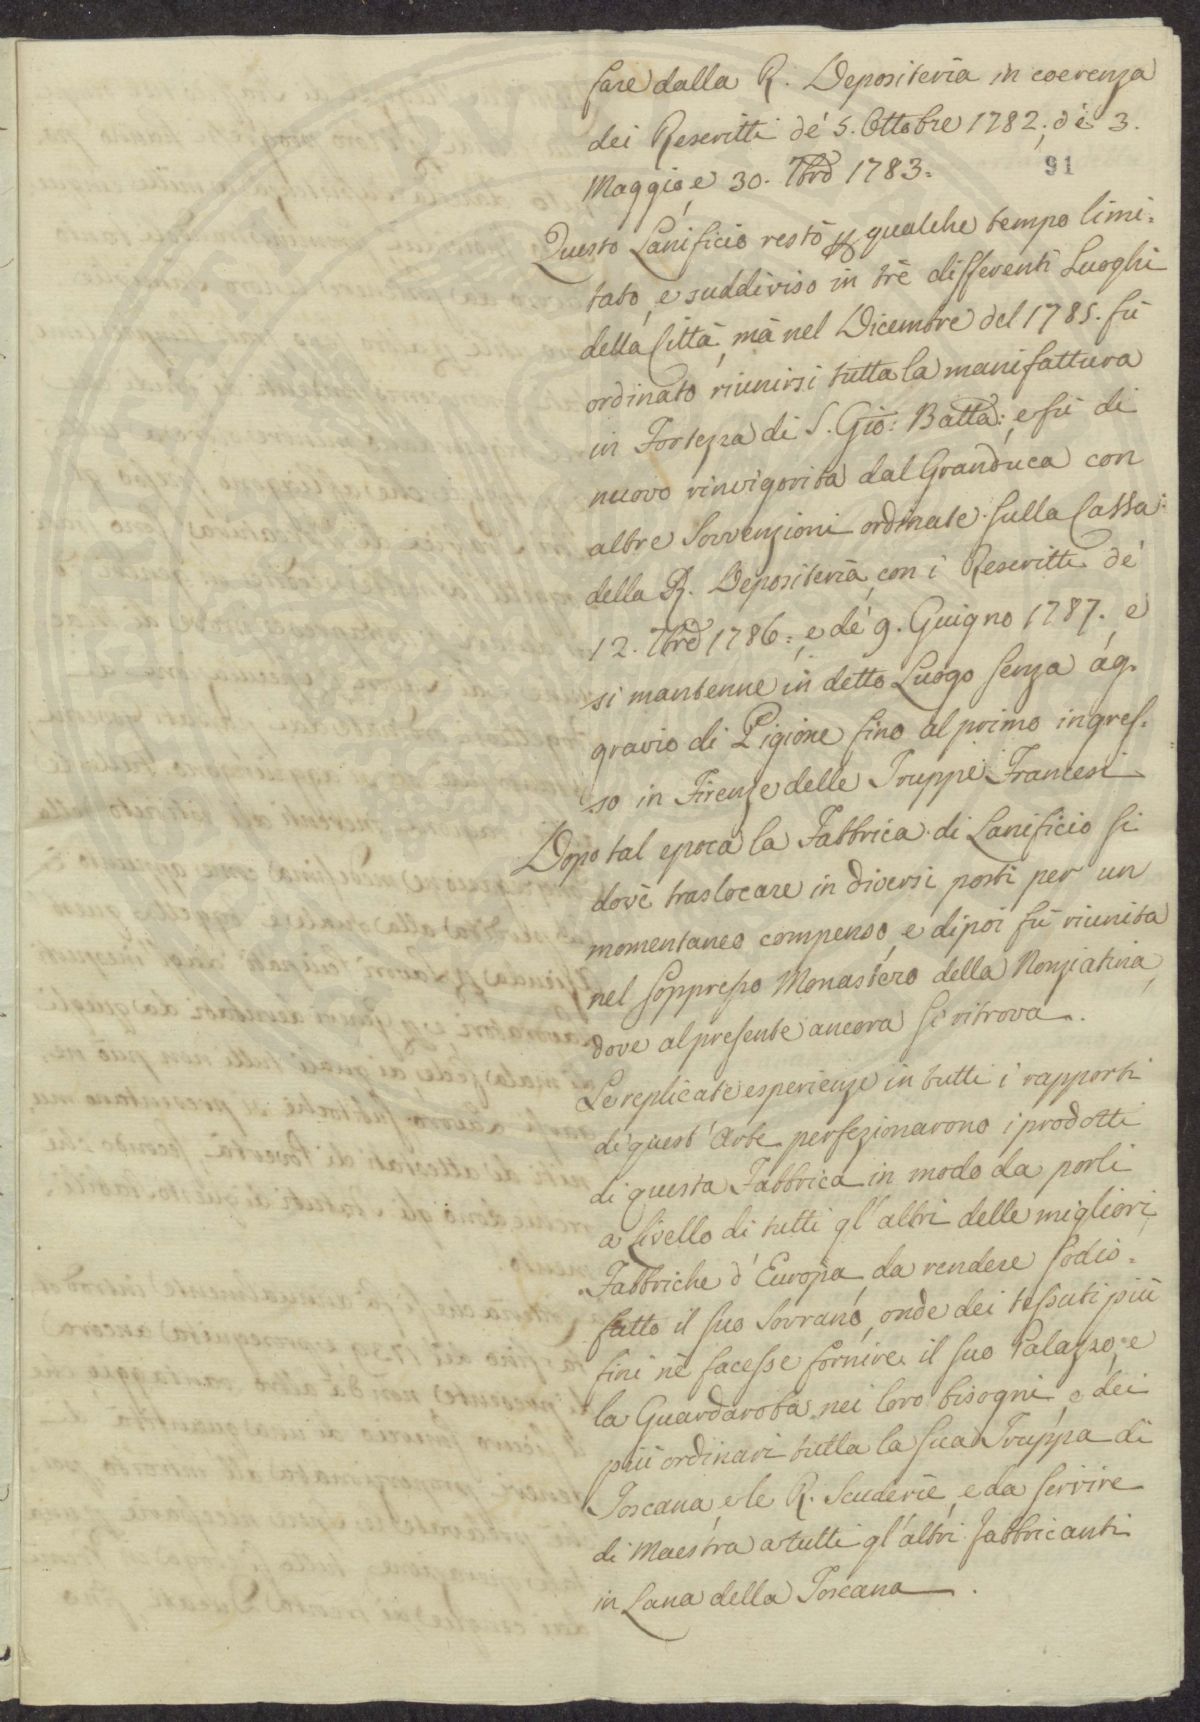 fare dalla R. Depositerìa in coerenza
dei Rescritti de' 5. Ottobre 1782; dè 3.
Maggio, e 30. 7bre 1783.
91
Questo Lanificio restò per qualche tempo limi-
tato, e suddiviso in trè differenti Luoghi
della Città, mà nel Dicembre del 1785. fù
ordinato riunirsi tutta la manifattura
in Fortezza di S. Gio: Batta: e fù di
nuovo rinvigorita dal Granduca con
altre Sovvenzioni ordinate sulla Cassa
della R. Depositerìa, con i Rescritti de'
12. 7bre 1786: e dè 9. Guigno 1787. e
si mantenne in detto Luogo senza ag-
gravio di Pigione fino al primo ingres-
so in Firenze delle Truppe Francesi
Dopo tal epoca la Fabbrica di Lanificio si
dovè traslocare in diversi posti per un
momentaneo compenso, e dipoi fù riunita
nel soppresso Monastero della Nonziatina,
dove al presente ancora si ritrova.
Le replicate esperienze in tutti i rapporti
di quest'Arte perfezionarono i prodotti
di questa Fabbrica in modo da porli
a livello di tutti gl'altri delle migliori
Fabbriche d'Europa, da rendere sodis-
fatto il suo Sovrano, onde dei tessuti più
fini nè facesse fornire il suo Palazzo, e
la Guardaroba nei loro bisogni, e dei
più ordinari tutta la sua Truppa di
Toscana, e le R. Scuderìe, e da servire
di Maestra a tutti gl'altri fabbricanti
in Lana della Toscana.